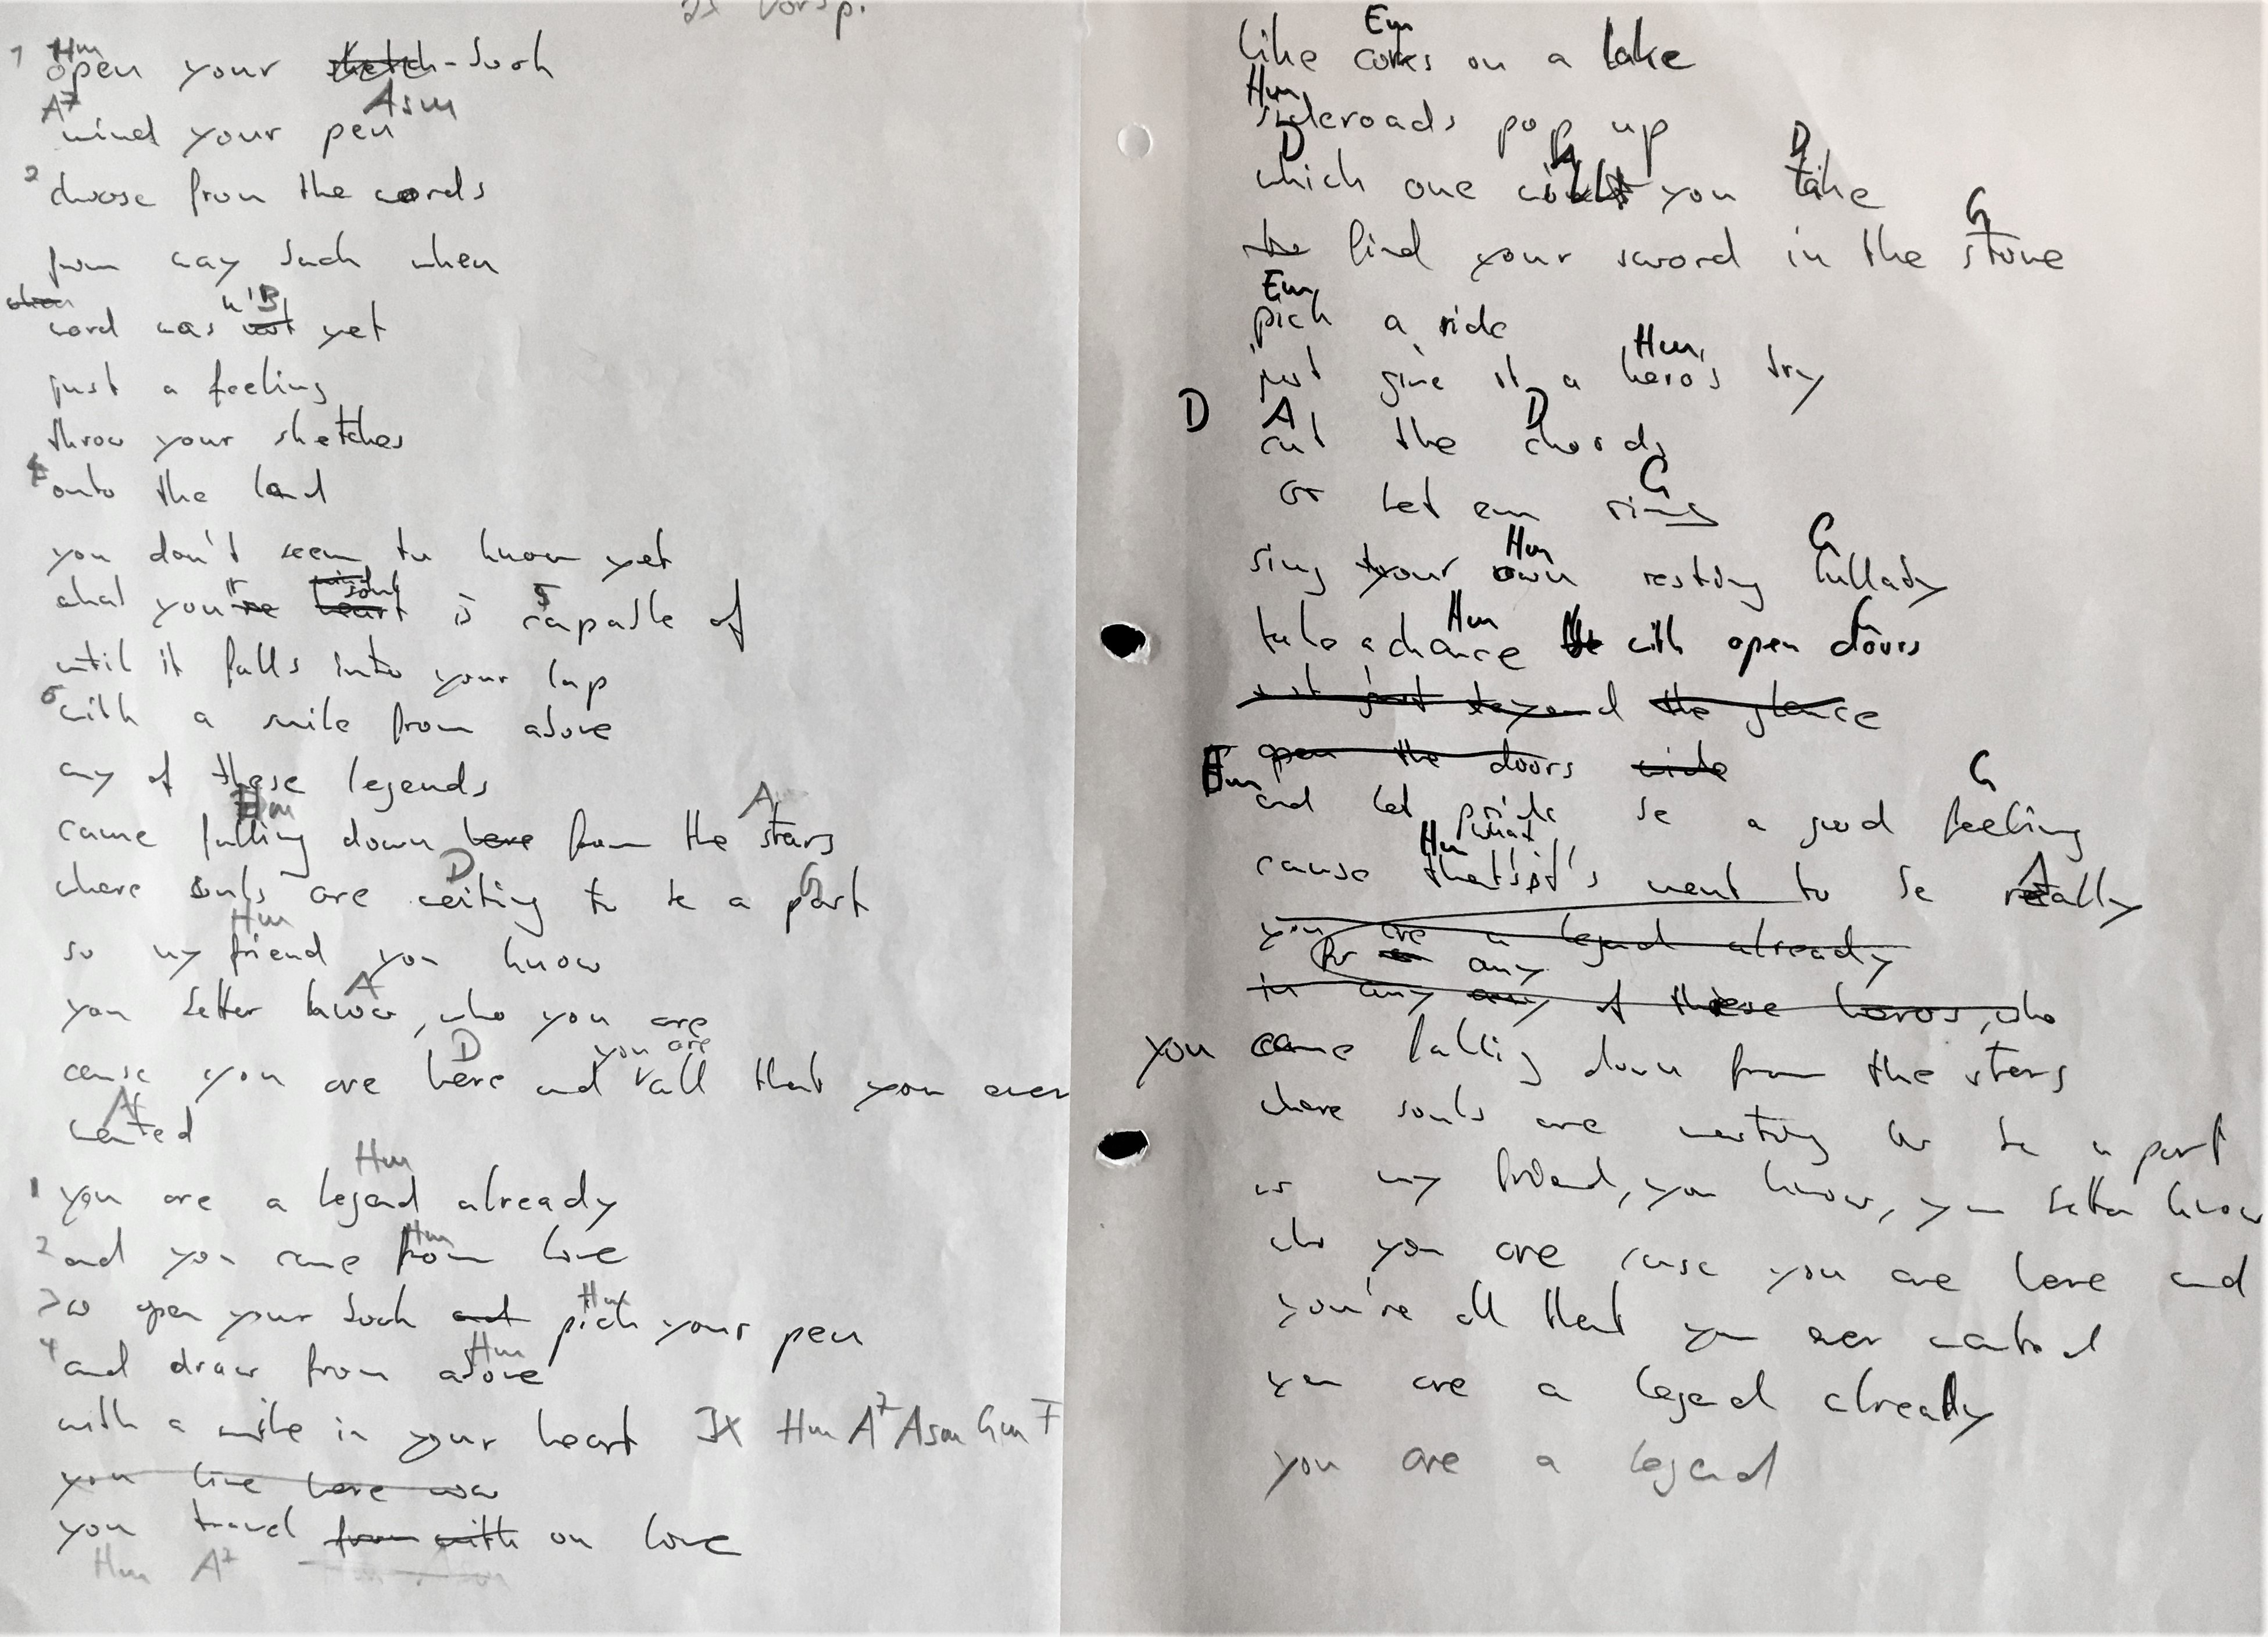 2x Vorsp.
Hm
1 open your sketch-book
A7 Asm
mind your pen
2 choose from the words
from way back when
when n't
word was not yet
just a feeling
throw your sketches
4 onto the land
you don't seem to know yet
mind soul
what you're heart is capable of
until it falls into your lap
6 with a smile from above
any of these legends
Hm A
came falling down here from the stars
D G
where souls are waiting to be a part
Hm
so my friend you know
A
you better know, who you are
D you are
cause you are here and all that you ever
A
wanted
Hm
1 you are a legend already
Hm
2 and you came from love
Hm
3 so open your book and pick your pen
Hm
4 and draw from above
with a smile in your heart 3x Hm A7 Asm Gm F
you live here
you travel from with on love
Hm A7
Em
like cories on a lake
Hm
sideroads pop up
D G D
which one would you take
G
the find your sword in the stone
Em
pick a ride
Hm
just give it a hero's try
D A D
cut the chords
G
or let em ring
Hm G
sing to your own resting lullaby
Hm G
take a chance with open doors
just beyond the glance
open the doors wide
Em G
and let pride be a good feeling
Hm what A
cause that's it's ment to be really
you are a legend already
for any
in any any of these heros, who
you came falling down from the stars
where souls are waiting to be a part
so my friend, you know, you better know
who you are cause you are here and
you're all that you ever wanted
you are a legend already
you are a legend